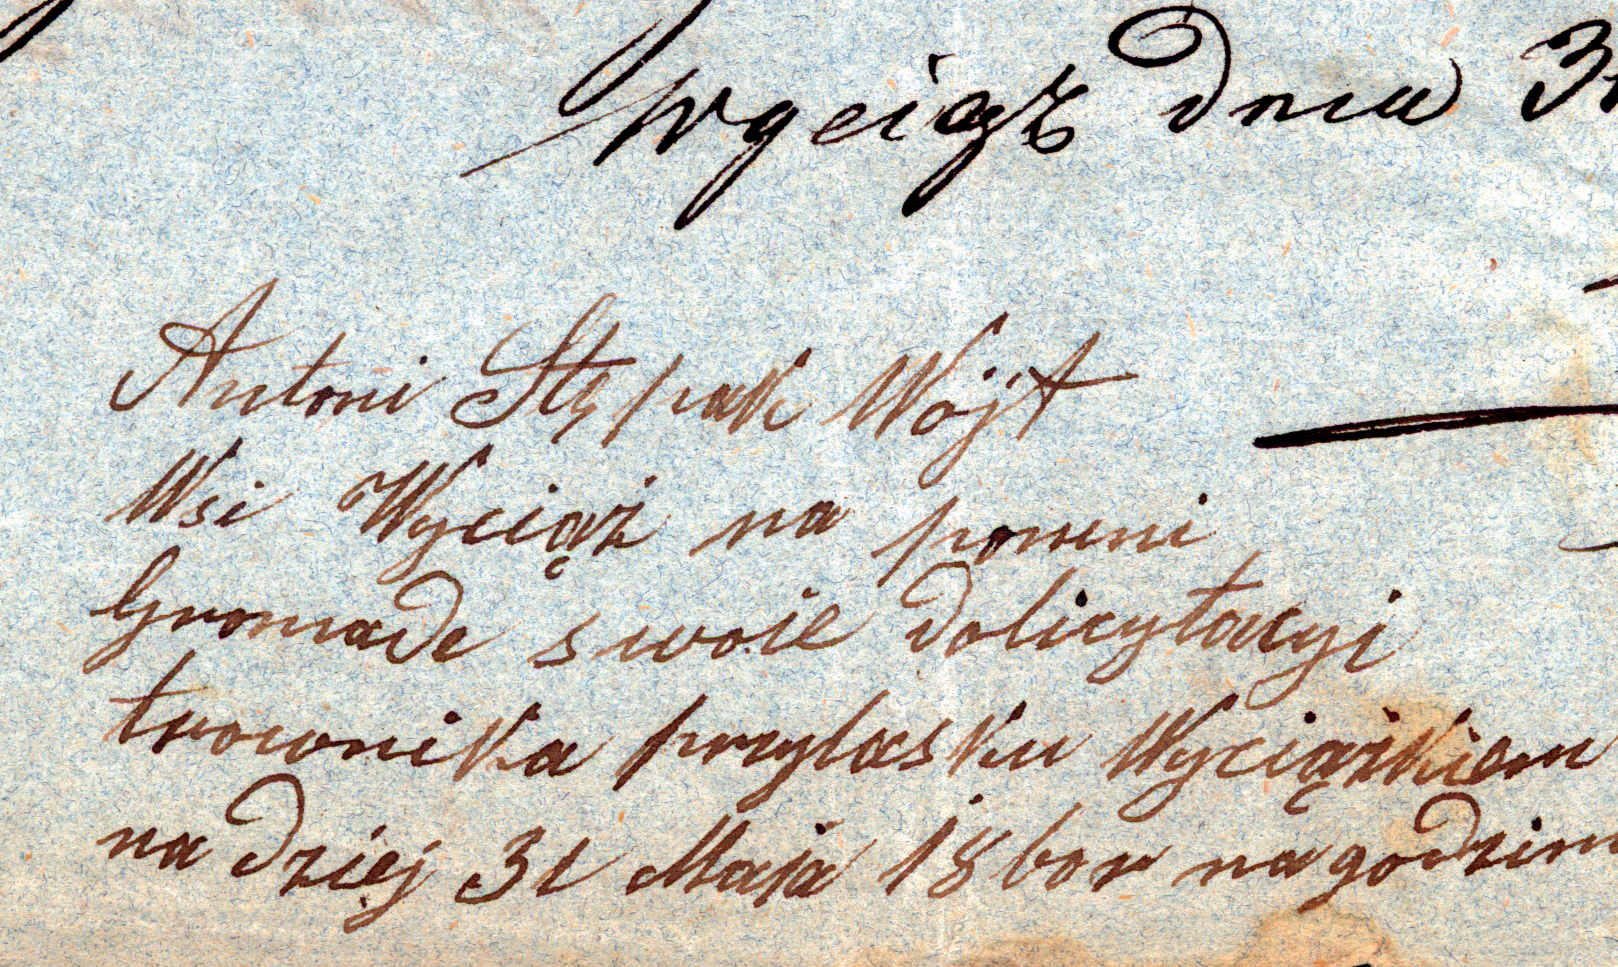 Wyciąż dnia 3
Antoni Stępak Wójt
Wsi Wyciąż na powini
Gromade swoie dolicytacyi
trawnika przylasku Wyciąźkiem
na dziej 31 Maja 1860r na godzin